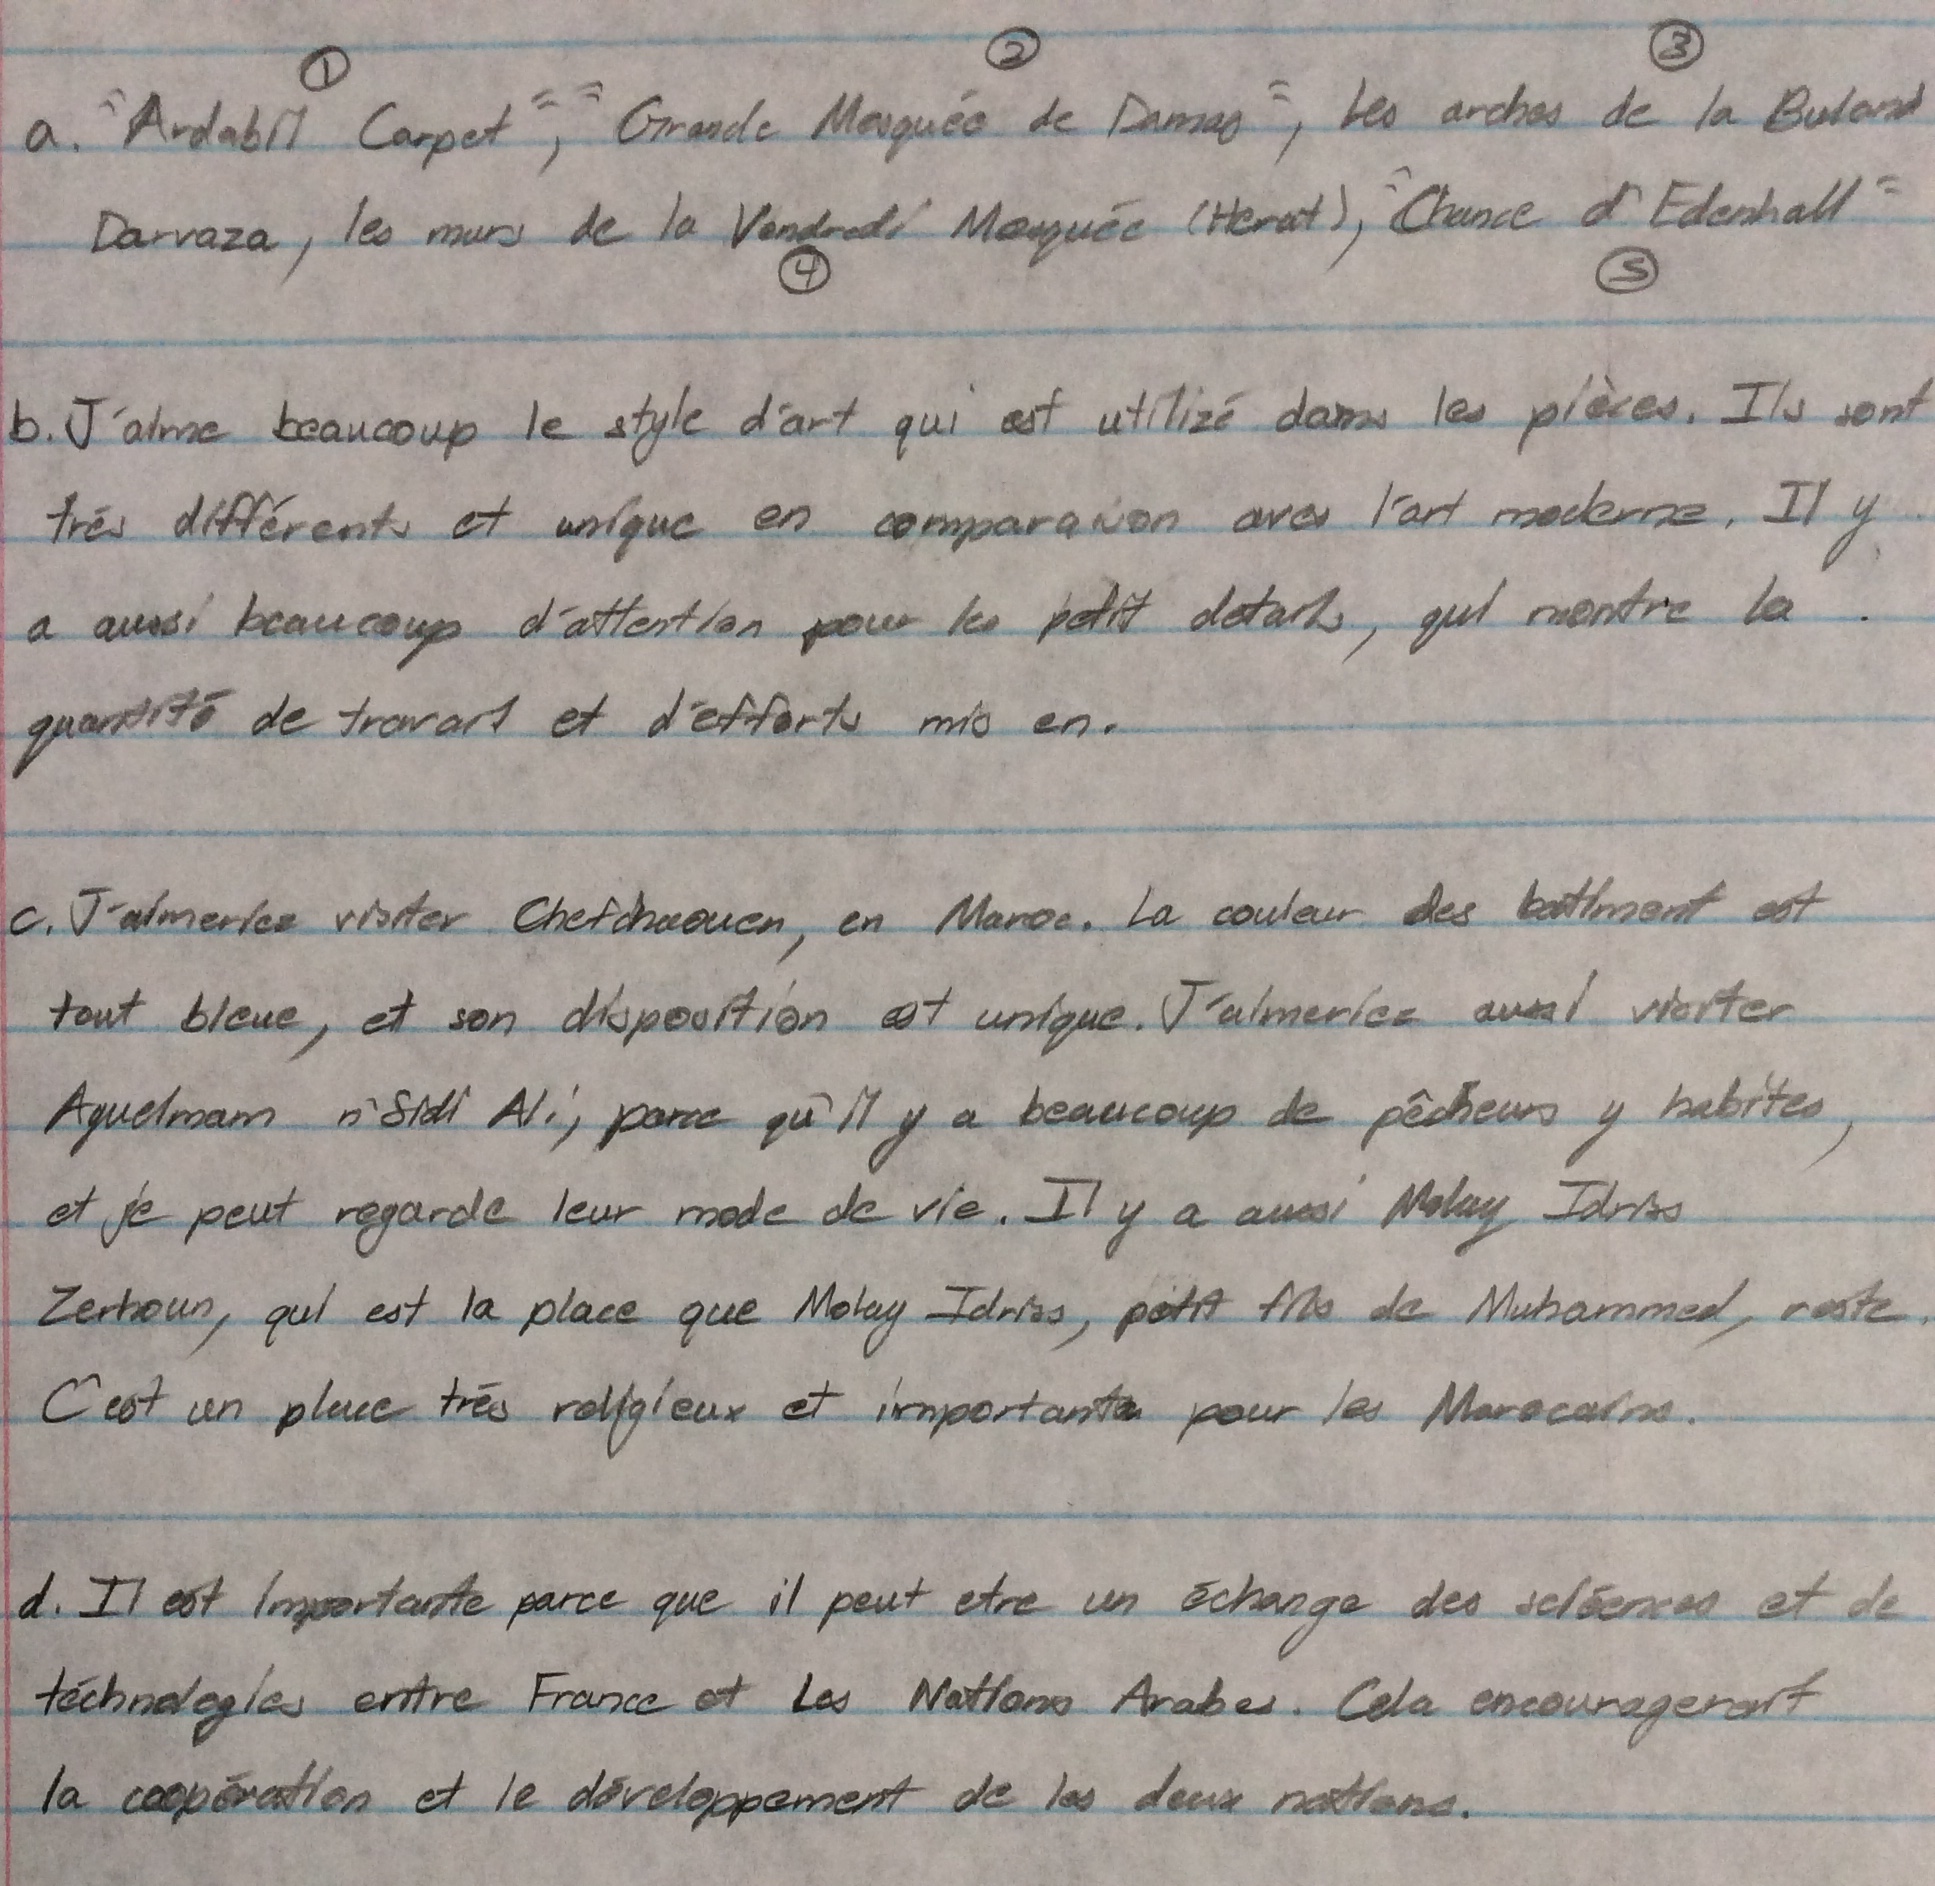 ① ② ③
a. "Ardabil Carpet", "Grande Mosquée de Damas", Les arches de la Buland
Darvaza, les murs de la Vendredi Mosquée (Herat), "Chance d'Edenhall"
④ ⑤
b. J'aime beaucoup le style d'art qui est utilizé dans les pièces. Ils sont
très différents et unique en comparaison avec l'art moderne. Il y
a aussi beaucoup d'attention pour les petit details, qui montre la
quantité de travail et d'efforts mis en.
c. J'aimeries visiter Chefchaouen, en Maroc. La couleur des batiment est
tout bleue, et son disposition est unique. J'aimeries aussi visiter
Aguelmam n'Sidi Ali, parce qu'il y a beaucoup de pêcheurs y habites,
et je peut regarde leur mode de vie. Il y a aussi Molay Idriss
Zerhoun, qui est la place que Molay Idriss, petit fils de Muhammed, reste.
C'est un place très religieux et importante pour les Marocains.
d. Il est importante parce que il peut etre un échange des sciéences et de
téchnologies entre France et Les Nations Arabes. Cela encouragerait
la coopération et le développement de les deux nations.